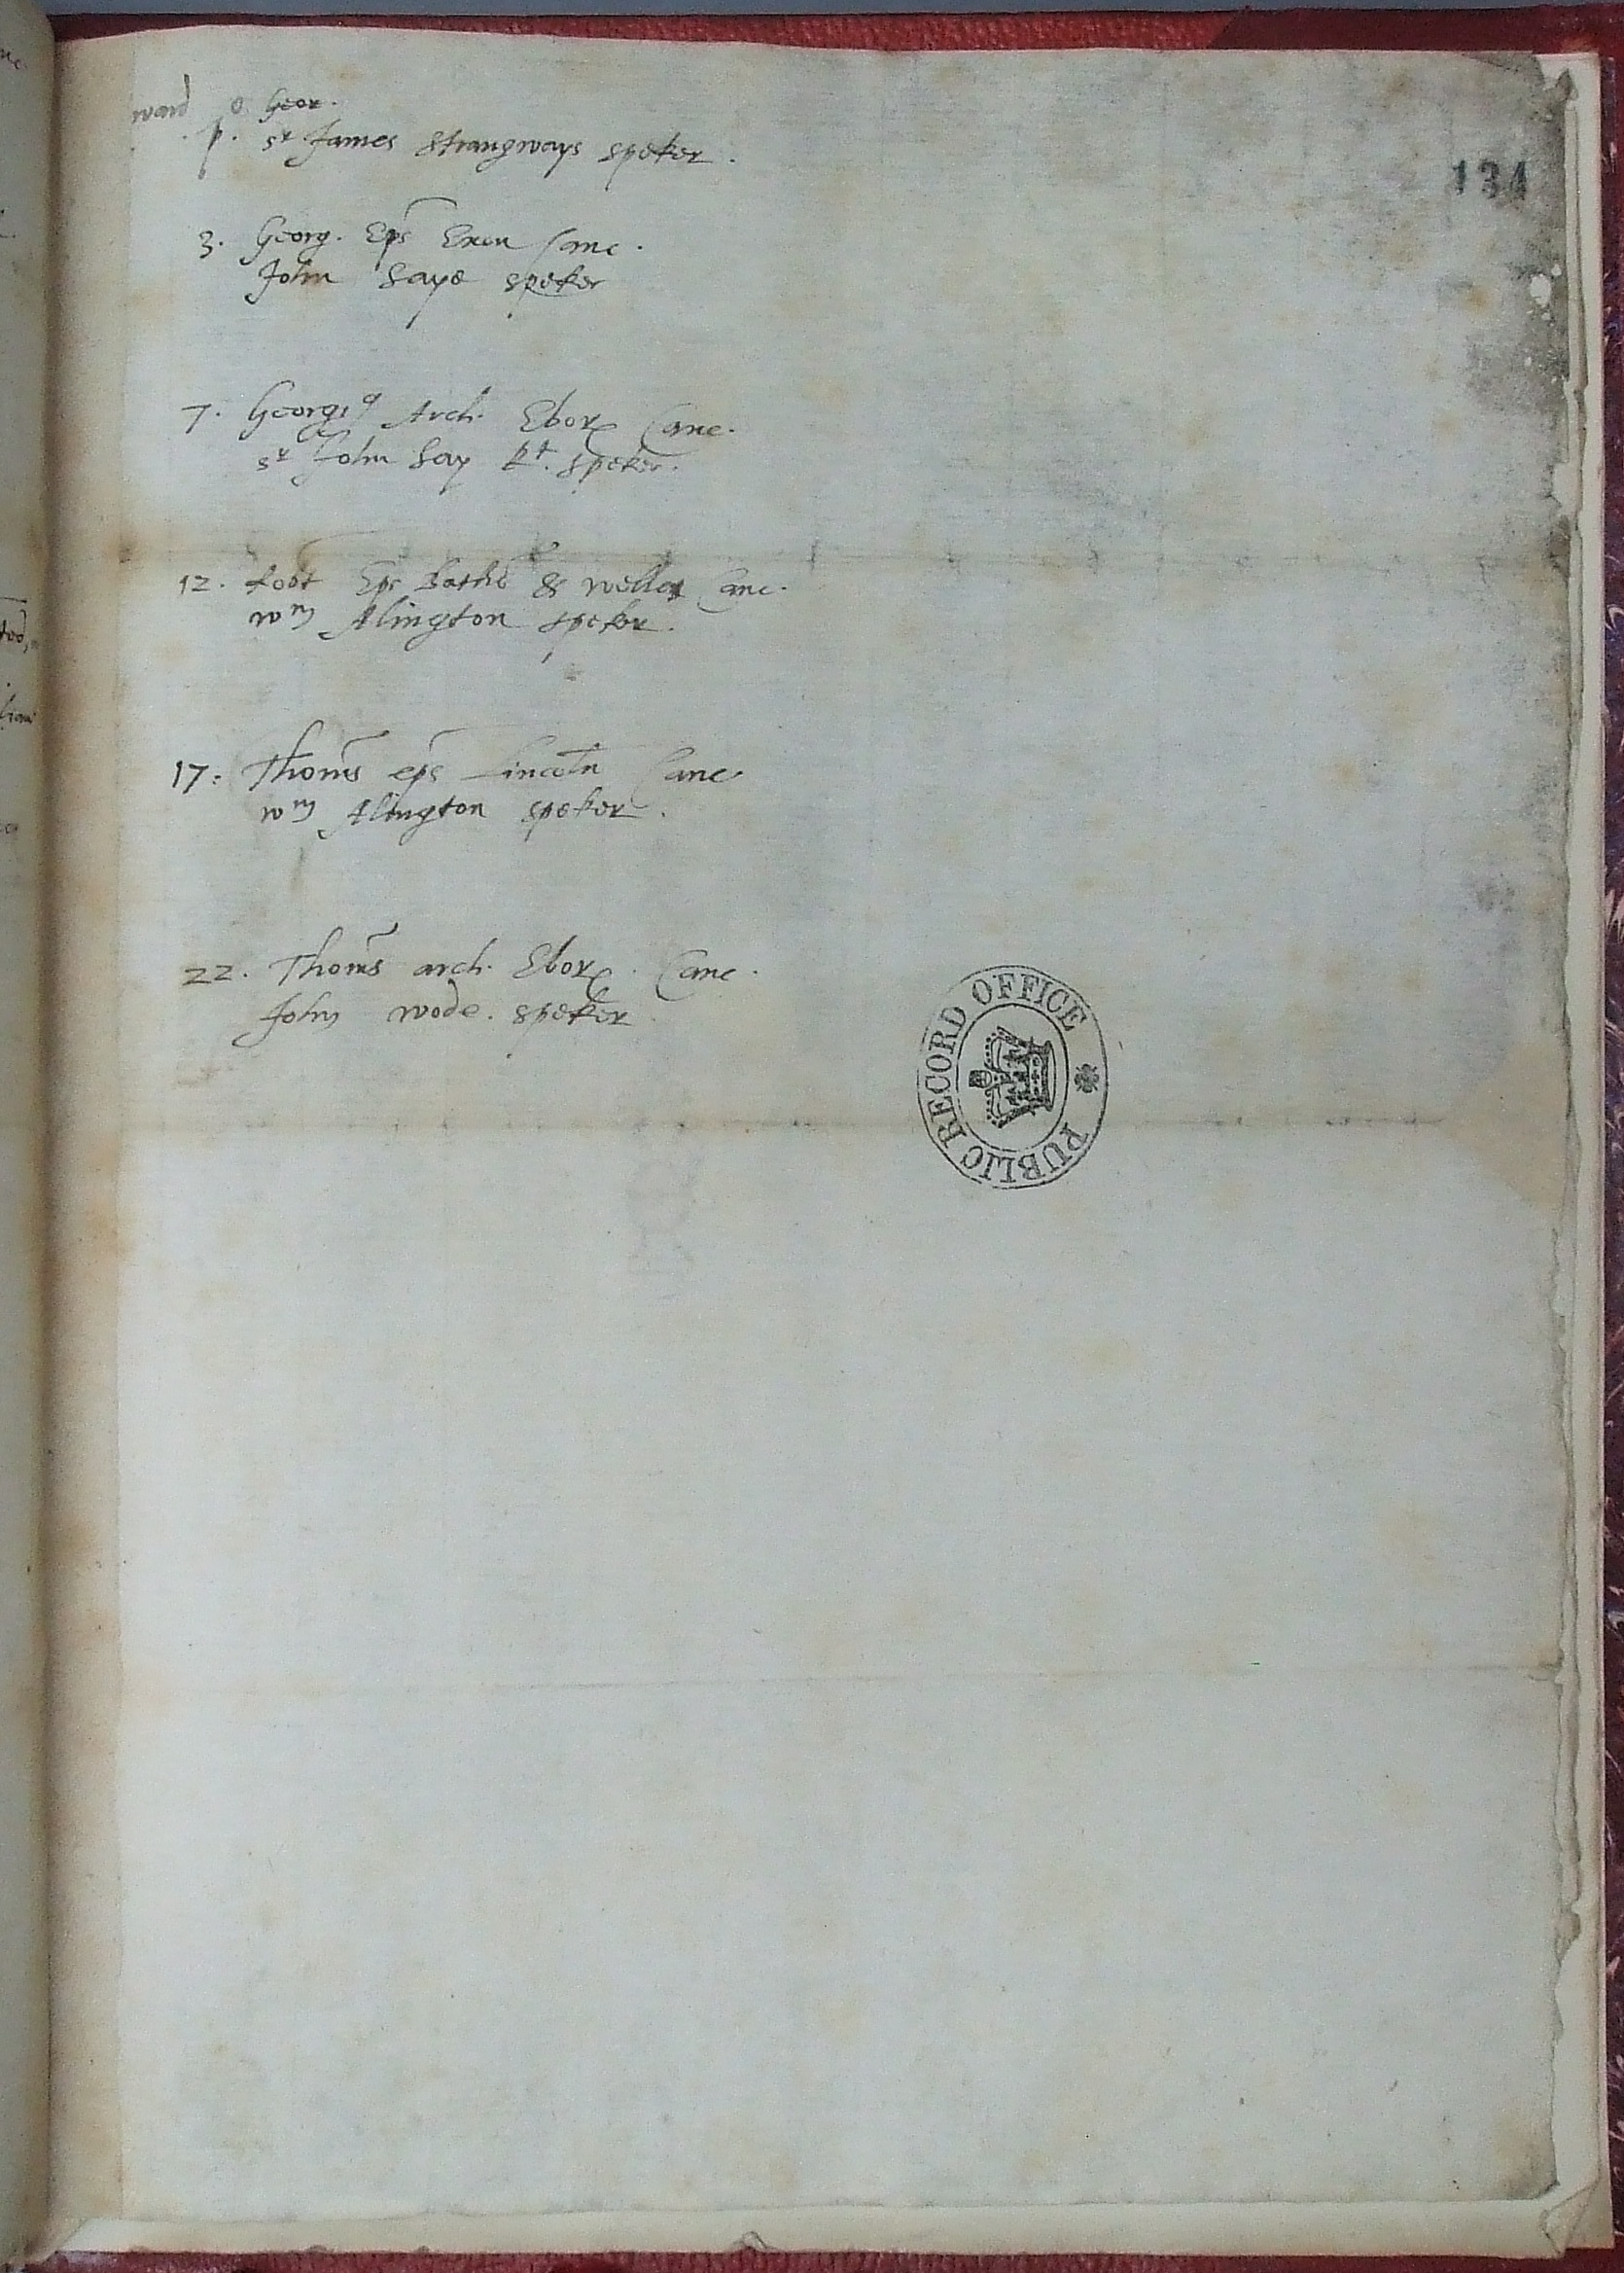 ward p̊. Geor.
p. Sr James Strangways speker.
134
3. Georg. Eps Exon Canc.
John Saye speker
7. Georgi9 Arch. Ebor Canc.
Sr John Say kt. speker.
12. Robt Eps Bathe & Welles Canc.
Wm Alington speker.
17: Thoms eps Lincoln Canc.
Wm Alington speker.
22. Thoms arch. Ebor. Canc.
John Wode. speker
PUBLIC RECORD OFFICE